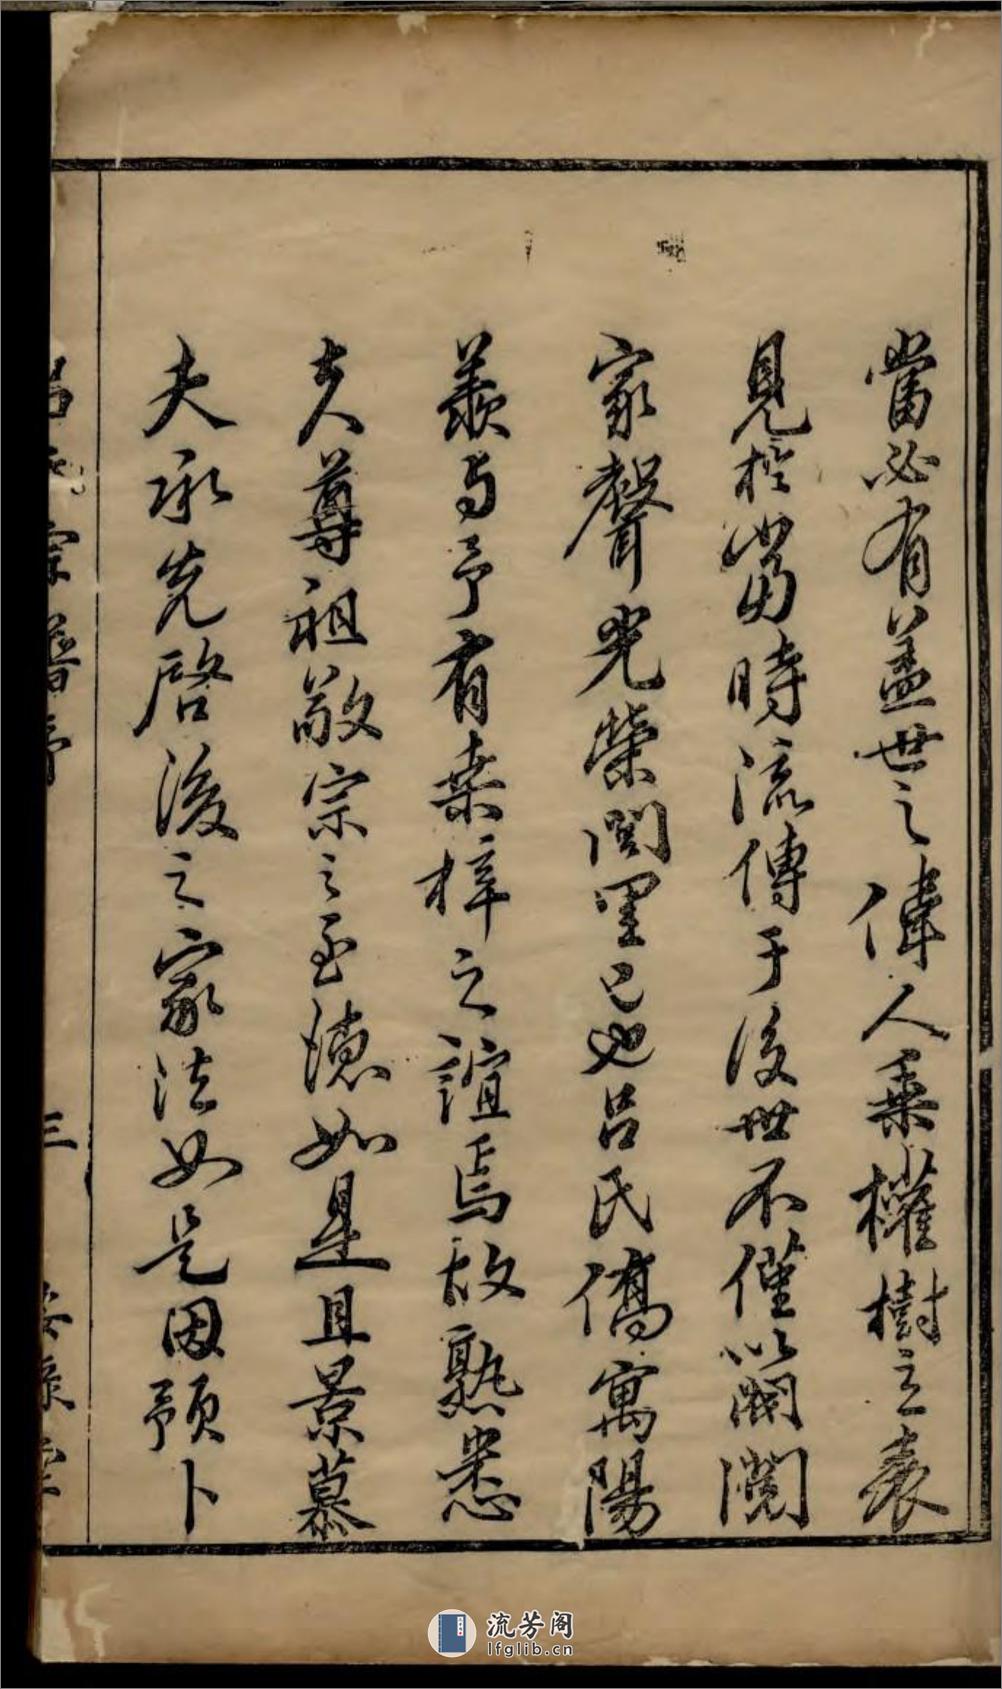 當必有蓋世之偉人乘權樹立表
見於當時流傳于後世不僅以閥閱
家聲光榮閭里已也呂氏僑寓陽
羨與予有桑梓之誼焉故熟悉
其人尊祖敬宗之至德如是且景慕
夫承先啓後之家法如是因預卜
呂氏宗譜序
三
流芳阁
lfglib.cn